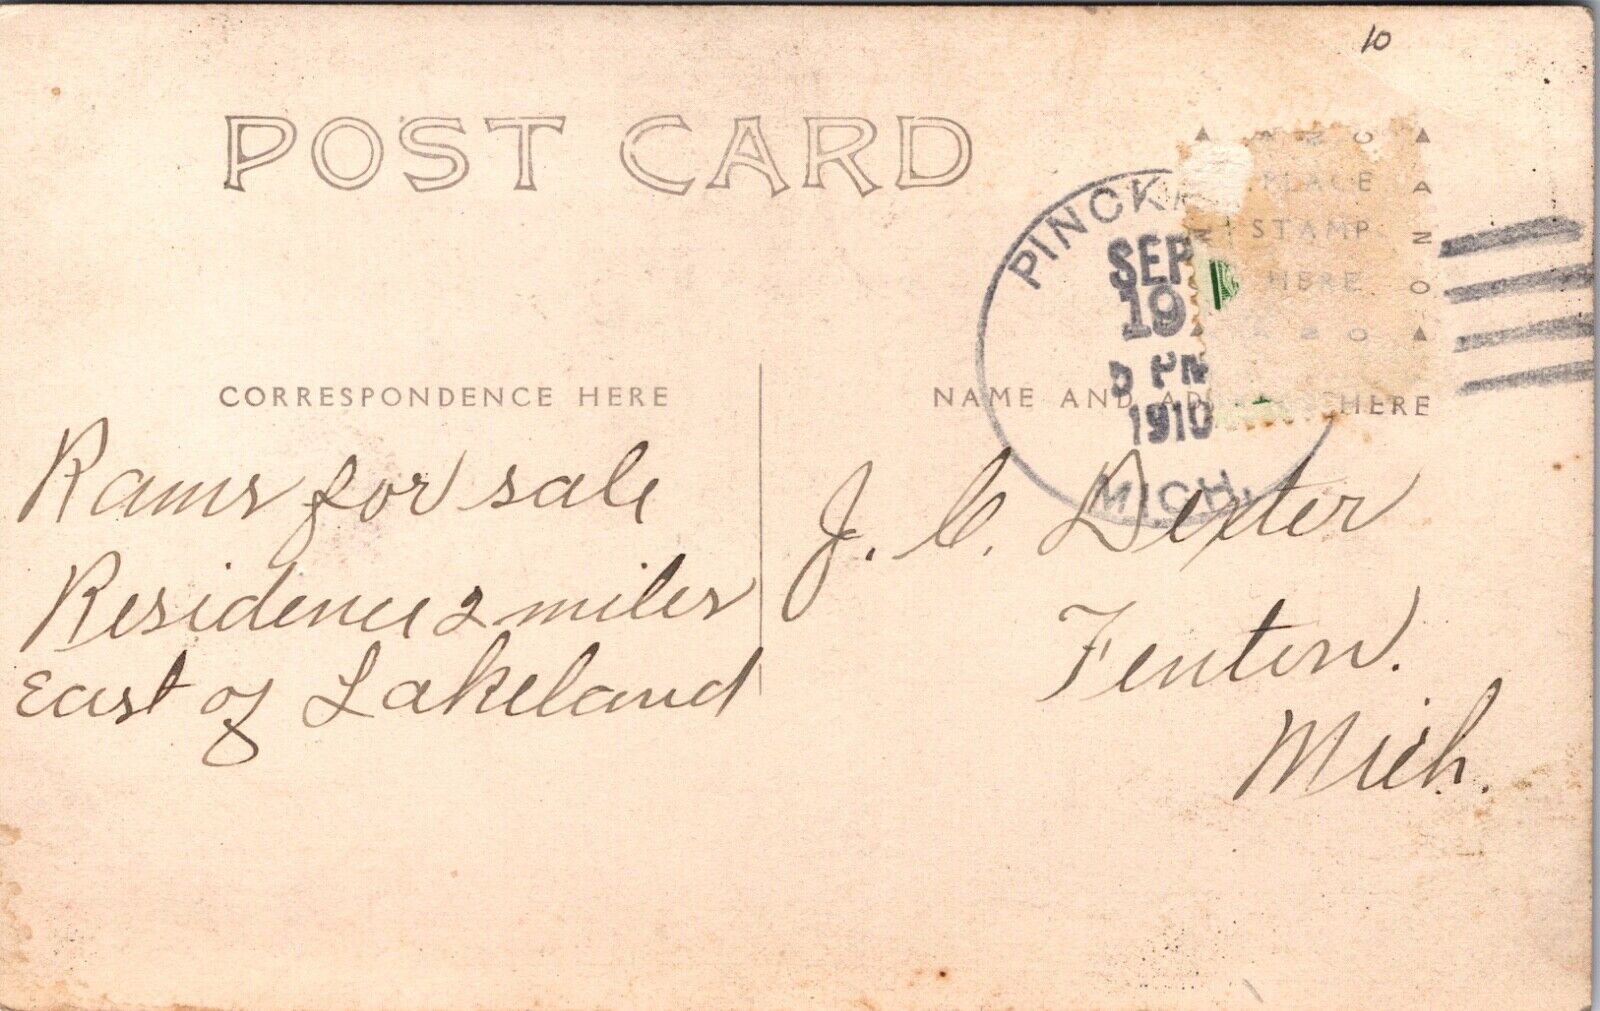 10
POST CARD
PLACE
STAMP
HERE
SEP
19
PM
1910
MICH.
CORRESPONDENCE HERE
NAME AND HERE
Rams for sale
Residence 2 miles
East of Lakeland
J. C. Dexter
Fenton.
Mich.